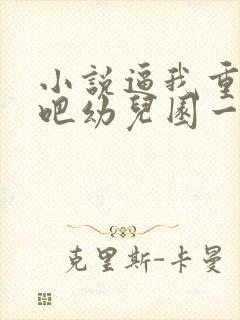 小說逼我重
吧幼兒園一
克里斯-卡曼